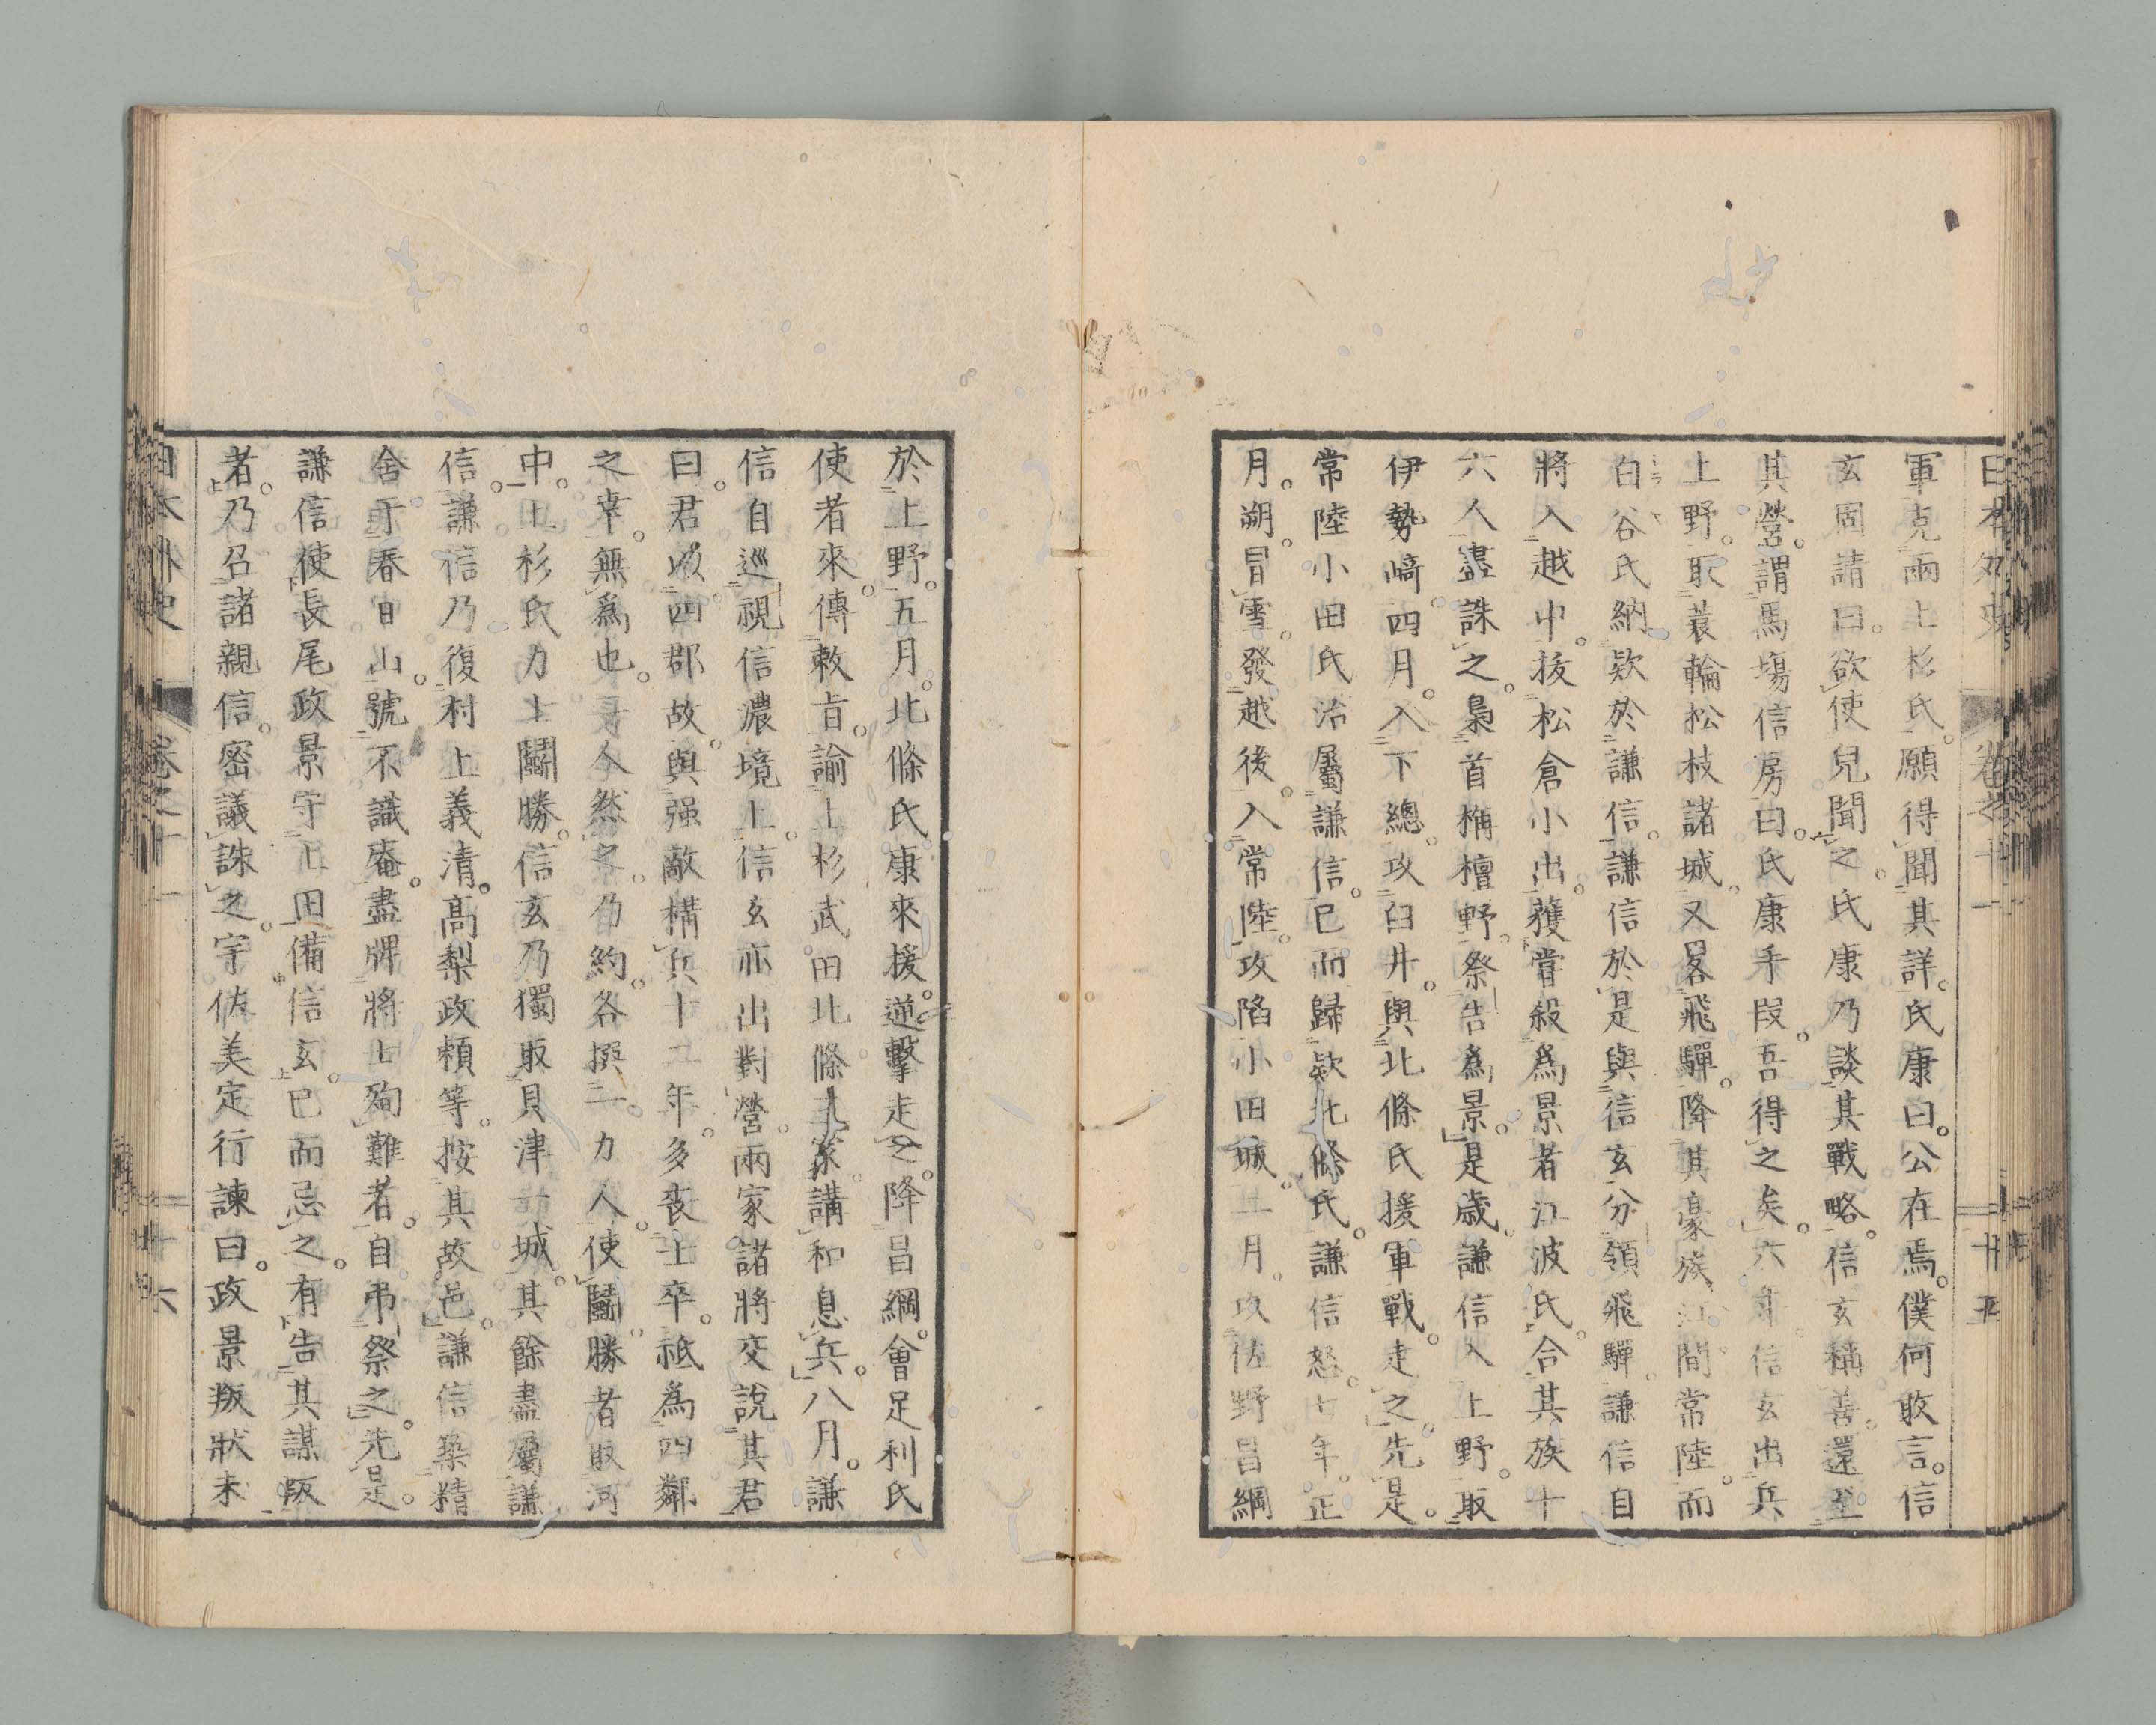 日本外史 卷之十一 十五
軍克兩上杉氏。願得聞其詳。氏康曰。公在焉。僕何敢言。信
玄固請曰。欲使兒聞之。氏康乃談其戰略。信玄稱善。還至
其營。謂馬塲信房曰。氏康手段。吾得之矣。六年。信玄出兵
上野。取蓑輪松枝諸城。又畧飛驒。降其豪族江間常陸。而
白谷氏納欵於謙信。謙信於是與信玄分領飛驒。謙信自
將入越中。拔松倉小出。獲甞殺爲景者江波氏。合其族十
六人盡誅之。梟首栴檀野。祭告爲景。是歲。謙信入上野。取
伊勢﨑。四月。入下總。攻臼井。與北條氏援軍戰。走之。先是。
常陸小田氏治屬謙信。已而歸欵北條氏。謙信怒。七年。正
月。朔。冒雪。發越後。入常陸。攻陷小田城。二月。攻佐野昌綱
於上野。五月。北條氏康來援。逆擊走之。降昌綱。會足利氏
使者來。傳敕旨。諭上杉武田北條三家。講和息兵。八月。謙
信自巡視信濃境上。信玄亦出對營。兩家諸將交說其君
曰。君以四郡故。與强敵構兵十二年。多喪士卒。祗爲四鄰
之幸。無爲也。二人然之。乃約。各撰一力人。使鬪。勝者取河
中。上杉氏力士鬪勝。信玄乃獨取貝津一城。其餘盡屬謙
信。謙信乃復村上義清。高梨政賴等。按其故邑。謙信築精
舍于春日山。號不識庵。盡牌將士殉難者。自弔祭之。先是。
謙信使長尾政景守上田備信玄。已而忌之。有告其謀叛
者。乃召諸親信。密議誅之。宇佐美定行諫曰。政景叛狀未
日本外史 卷之十一 十六